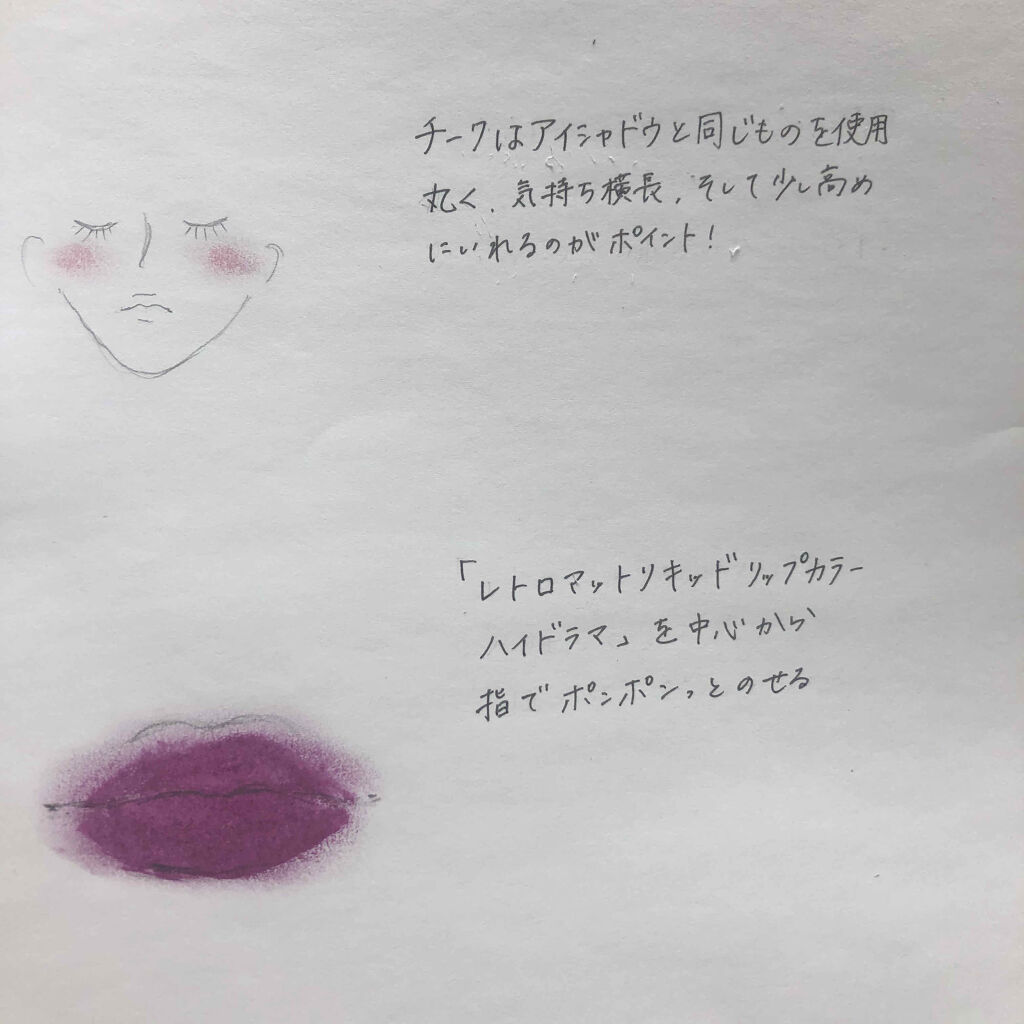 チークはアイシャドウと同じものを使用
丸く、気持ち横長、そして少し高め
にいれるのがポイント!
「レトロマットリキッドリップカラー
ハイドラマ」を中心から
指でポンポンっとのせる